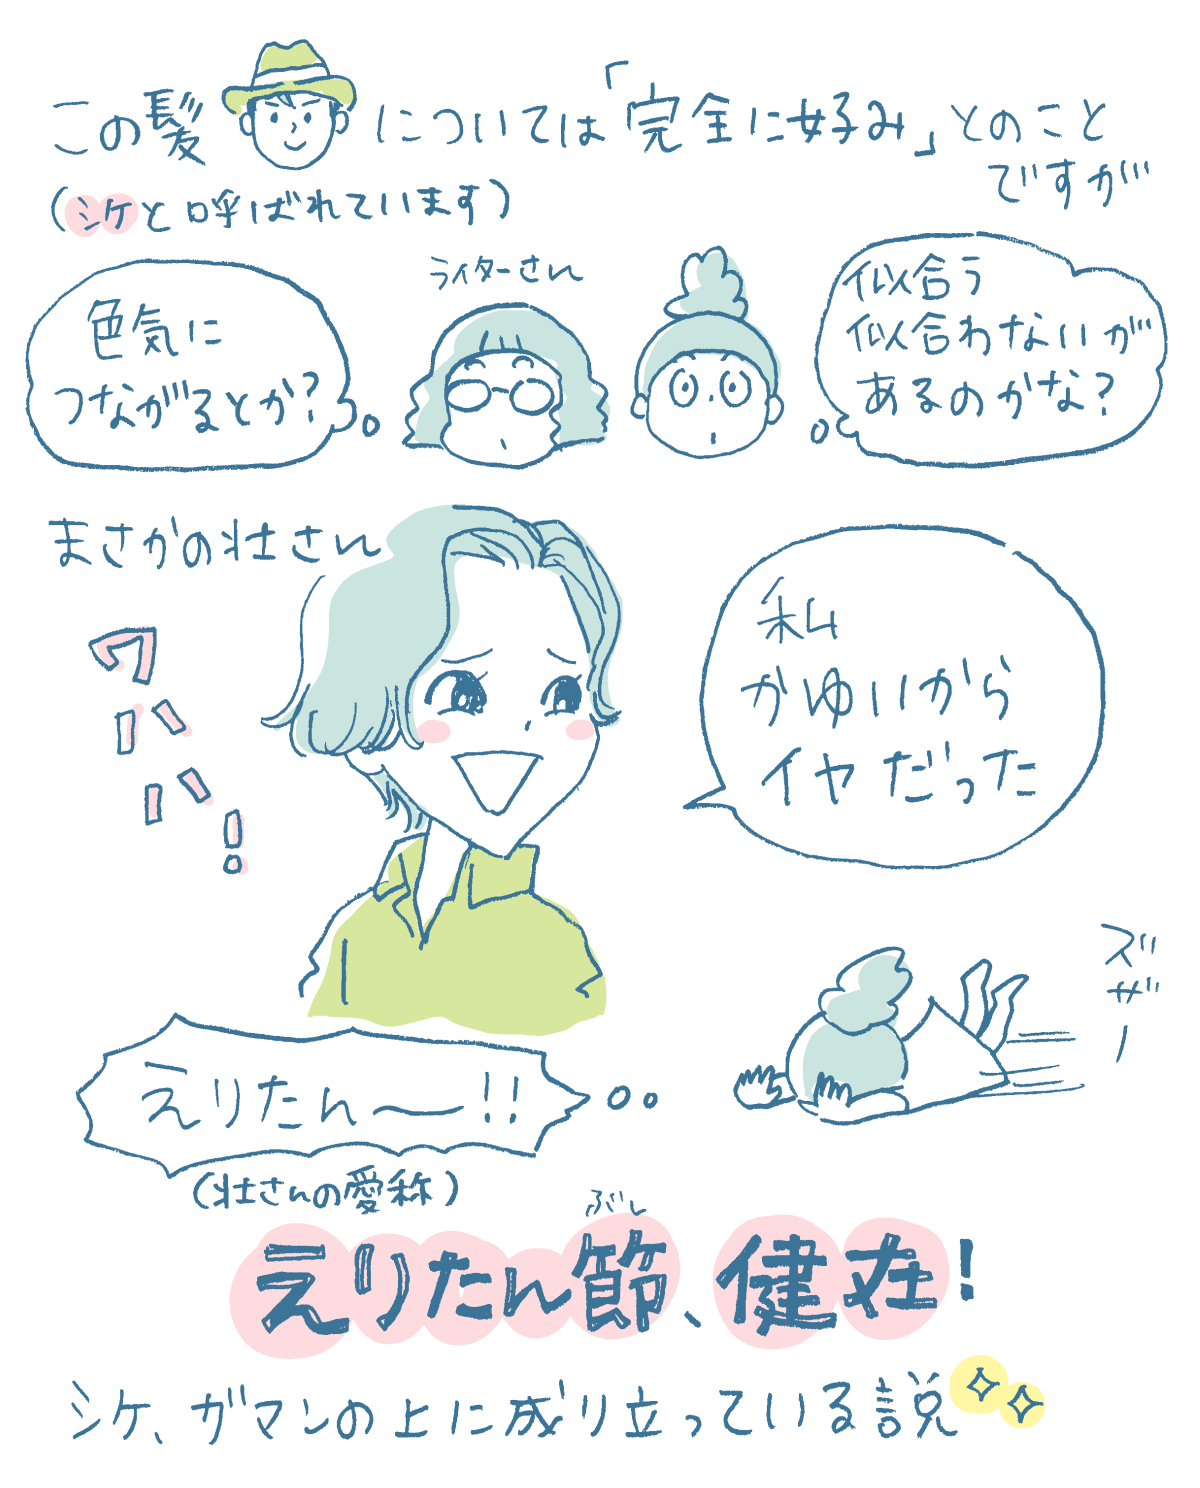 この髪については「完全に好み」とのこと
ですが
(シケと呼ばれています)
色気に
つながるとか?
ライターさん
似合う
似合わないが
あるのかな?
まさかの壮さん
ワハハ!
私
かゆいから
イヤだった
ズザー
えりたん〜!!
(壮さんの愛称)
ぶし
えりたん節、健在!
シケ、ガマンの上に成り立っている説